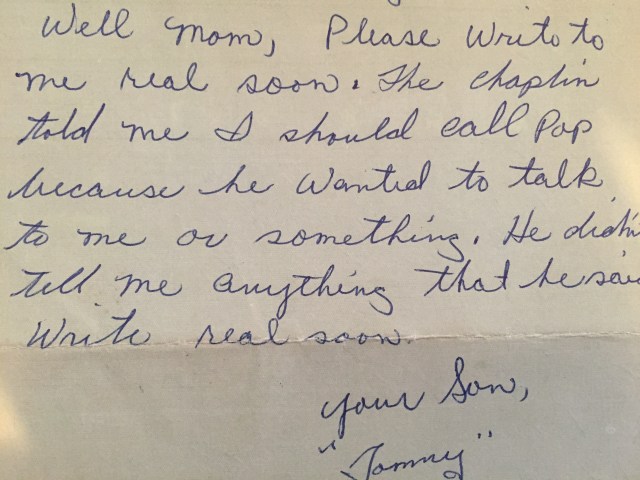 Well Mom, Please Write to
me real soon. The chaplin
told me I should call Pop
because he wanted to talk
to me or something. He didn
tell me anything that he said
Write real soon.
your Son,
"Tommy"